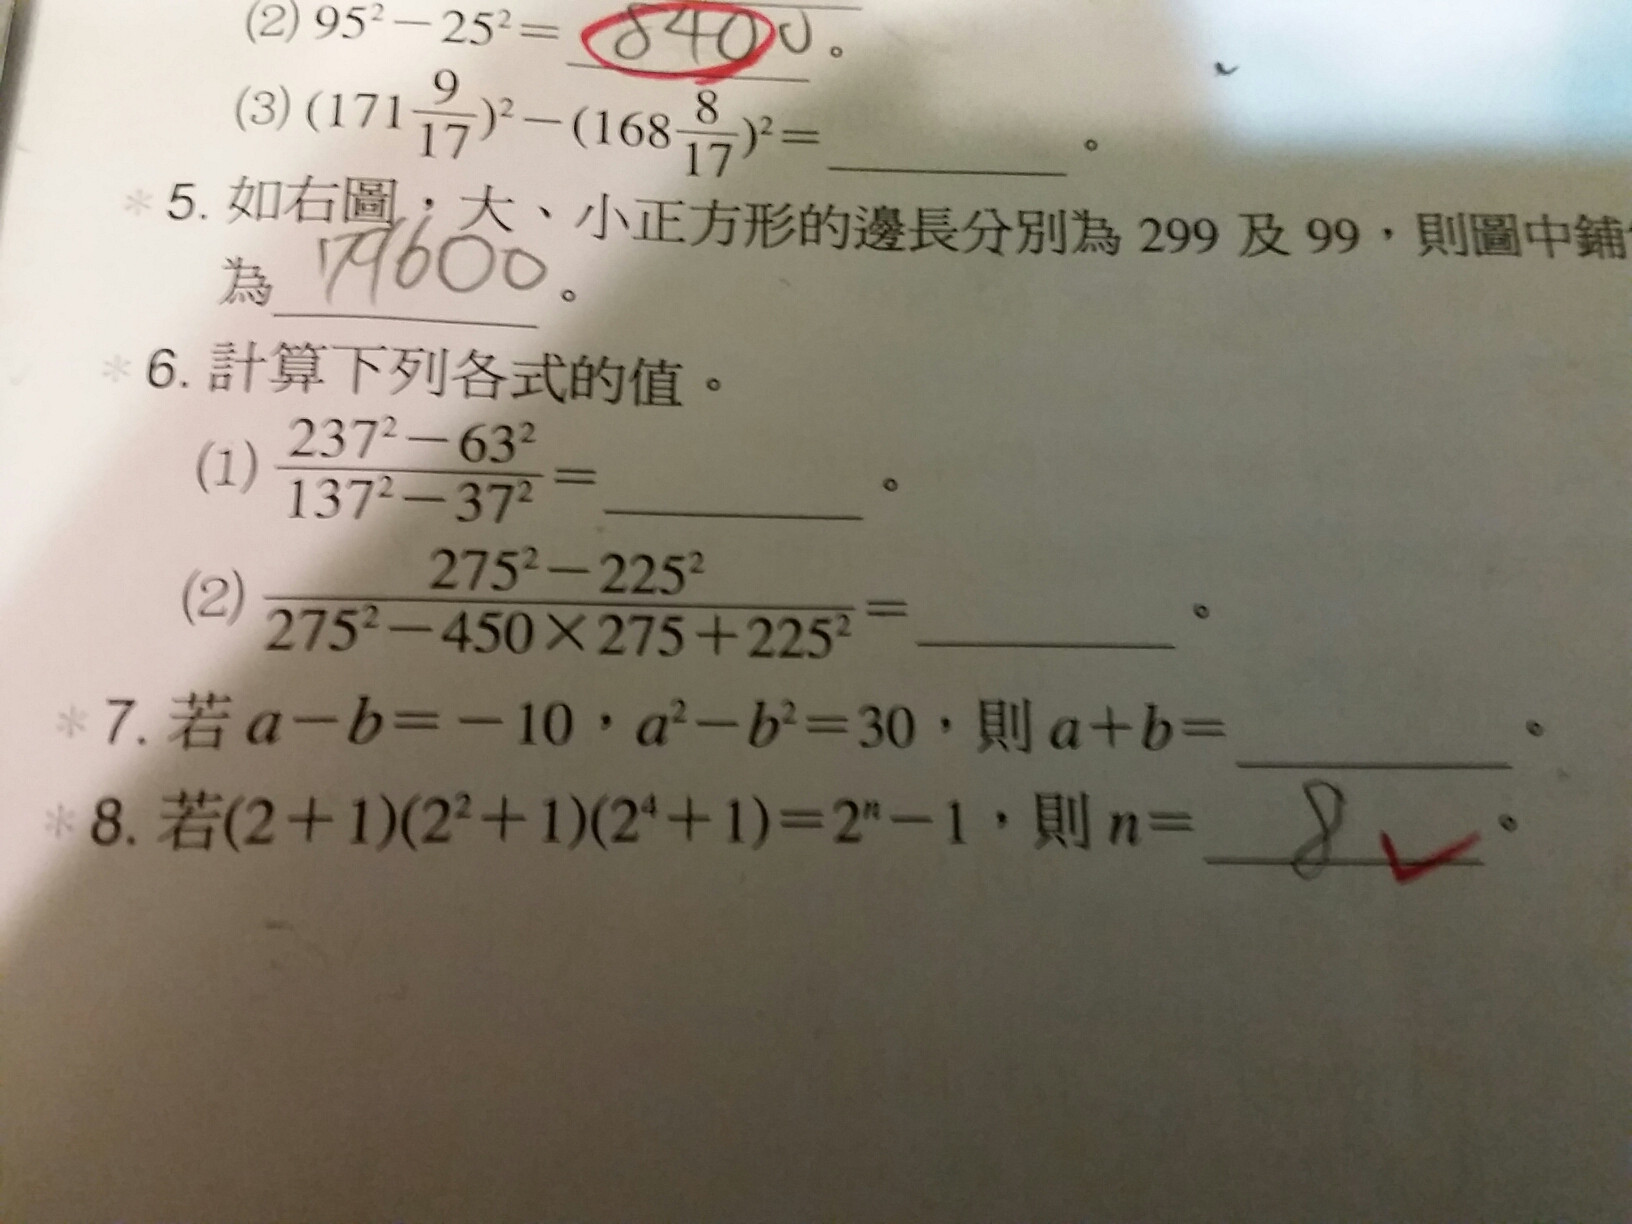 (2) 95²－25²＝ 8400 。
(3) (171 9/17)²－(168 8/17)²＝ 。
*5. 如右圖，大、小正方形的邊長分別為 299 及 99，則圖中鋪
為 179600 。
*6. 計算下列各式的值。
(1) (237²－63²)/(137²－37²)＝ 。
(2) (275²－225²)/(275²－450×275＋225²)＝ 。
*7. 若 a－b＝－10，a²－b²＝30，則 a＋b＝ 。
*8. 若(2＋1)(2²＋1)(2⁴＋1)＝2ⁿ－1，則 n＝ 8 。